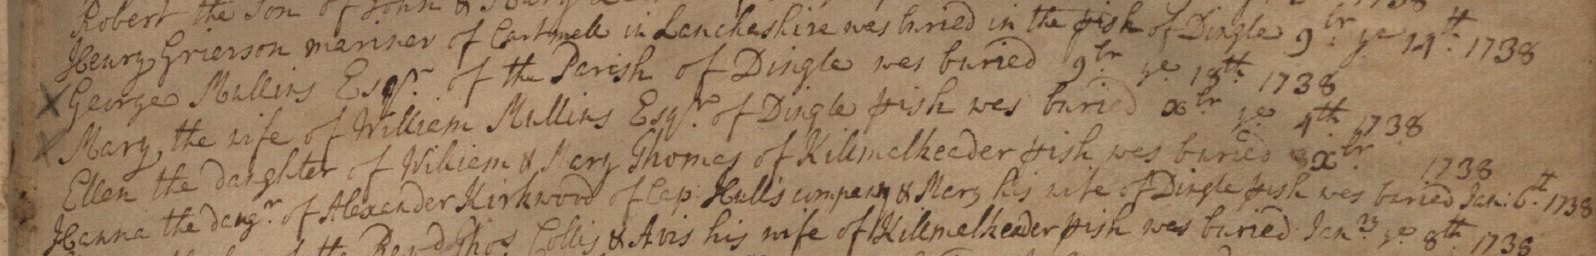 Robert the Son of John & Mary 1738
Henry Grierson mariner of Cartmell in Lancheshire was buried in the pish of Dingle 9br ye 14th 1738
X George Mullins Esqr. of the Parish of Dingle was buried 9br ye 18th 1738
X Mary, the wife of William Mullins Esqr. of Dingle pish was buried xbr ye 4th 1738
Ellen the daughter of William & Mary Thomas of Killmelkeader pish was buried xbr 1738
Hanna the daugr. of Alexander Kirkwood of Cap: Hulls company & Mary his wife of Dingle pish was buried Jan: 6th 1738
of the Revd Thos. Collis & Avis his wife of Killmelkeader pish was buried Janry ye 8th 1738